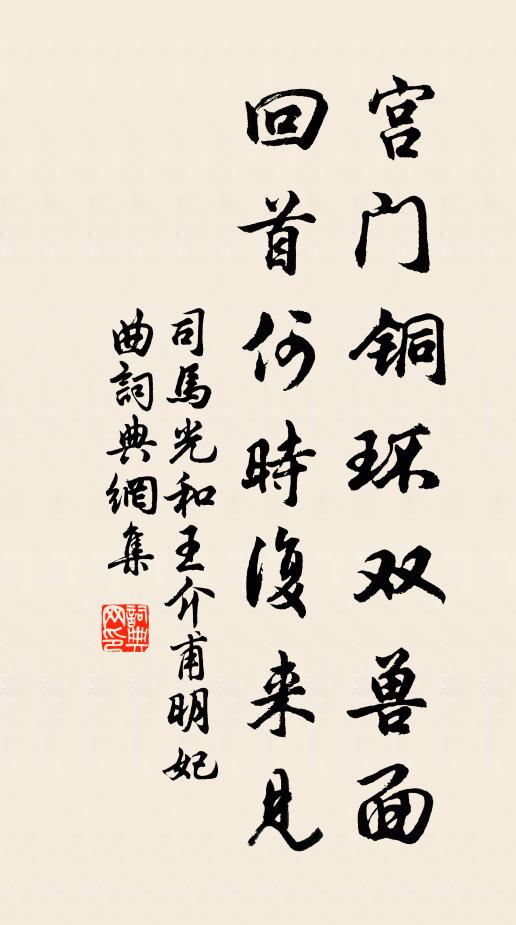 宫门铜环双兽面
回首何時復来見
司馬光和王介甫明妃
曲詞典網集
詞典网印